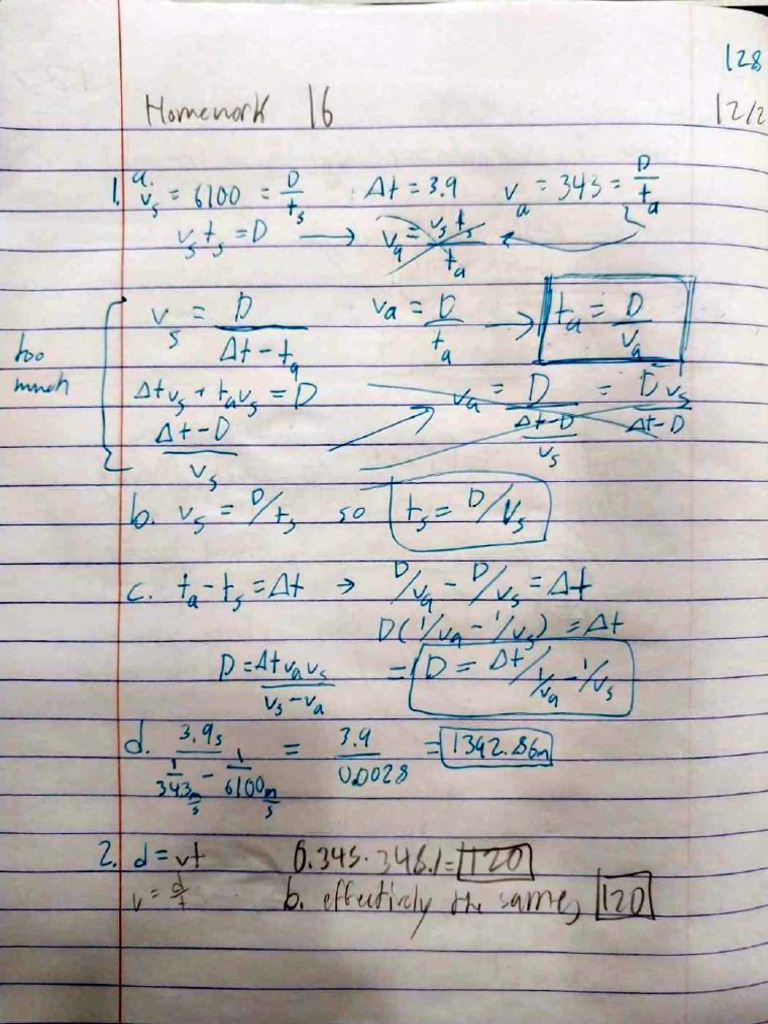 128
Homework 16 12/2
1. a. v_s = 6100 = D/t_s Δt = 3.9 v_a = 343 = D/t_a
v_s t_s = D → v_a = v_s t_s/t_a
v_s = D/(Δt - t_a) v_a = D/t_a → t_a = D/v_a
too much
Δt v_s + t_a v_s = D v_a = D/((Δt-D)/v_s) = D v_s/(Δt-D)
(Δt-D)/v_s
b. v_s = D/t_s so t_s = D/v_s
c. t_a - t_s = Δt → D/v_a - D/v_s = Δt
D(1/v_a - 1/v_s) = Δt
D = Δt v_a v_s/(v_s - v_a) = D = Δt/1/v_a - 1/v_s
d. 3.9s/(1/343 m/s - 1/6100 m/s) = 3.9/0.0028 = 1392.86m
2. d = vt 0.345 · 346.1 = 120
v = d/t b. effectively the same, 120